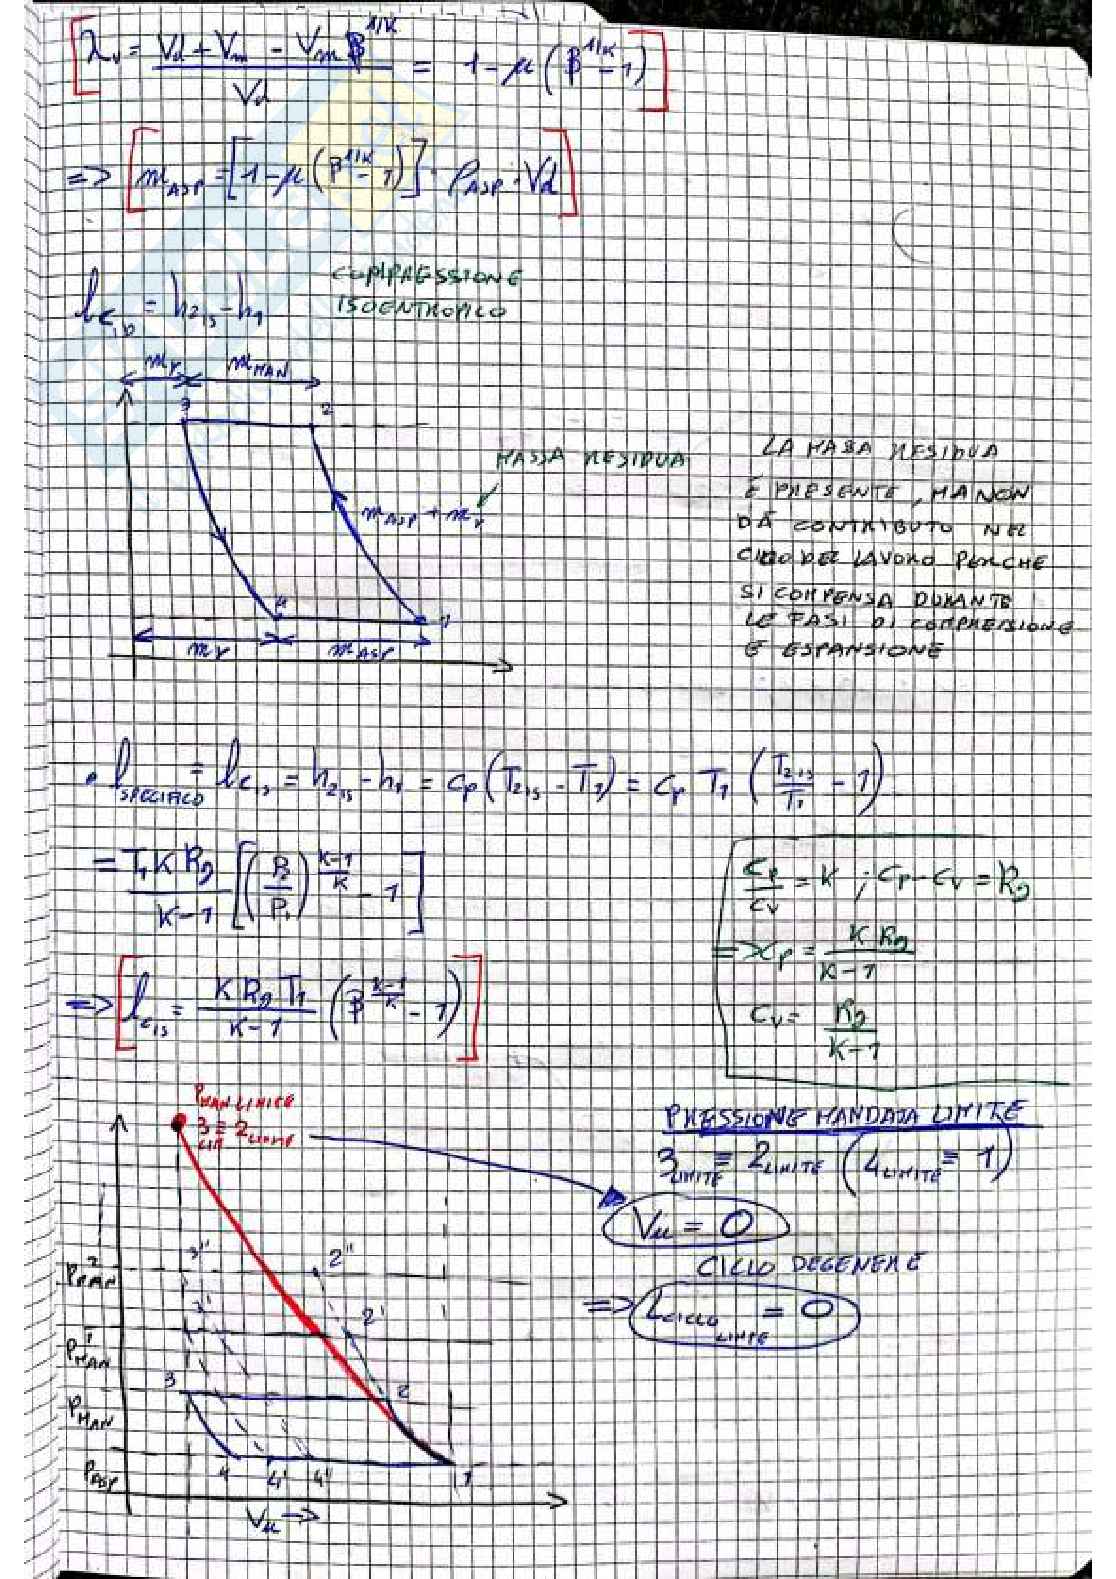 [λv = (Vd + Vm - Vm β^1/K) / Vd = 1 - μ (β^1/K - 1)]
=> [m_ASP = [1 - μ (β^1/K - 1)] · ρ_ASP · Vd]
COMPRESSIONE
ISOENTROPICO
l_c,is = h2is - h1
mr mMAN
3 2
MASSA RESIDUA
mASP + mr
4 1
mr mASP
LA MASSA RESIDUA
È PRESENTE, MA NON
DÀ CONTRIBUTO NEL
CICLO DEL LAVORO PERCHE
SI COMPENSA DURANTE
LE FASI DI COMPRESSIONE
E ESPANSIONE
• l_SPECIFICO = l_c,is = h2,is - h1 = cp (T2,is - T1) = cp T1 (T2,is/T1 - 1)
= T1 K Rg / (K-1) [(P2/P1)^(K-1)/K - 1]
=> [l_c,is = K Rg T1 / (K-1) (β^(K-1)/K - 1)]
cp/cv = K ; cp - cv = Rg
=> cp = K Rg / (K-1)
cv = Rg / (K-1)
PMAN LIMITE
3 LIM ≡ 2 LIMITE
PRESSIONE MANDATA LIMITE
3 LIMITE ≡ 2 LIMITE (4 LIMITE ≡ 1)
Vu = 0
CICLO DEGENERE
=> L CICLO LIMITE = 0
P²MAN 3'' 2''
P¹MAN 3' 2'
PMAN 3 2
PASP 4 4' 4'' 1
Vu →